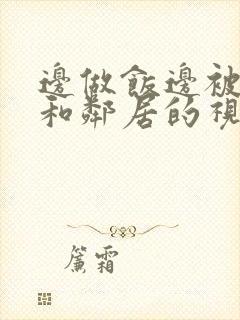 邊做飯邊被
和鄰居的視
簾霜